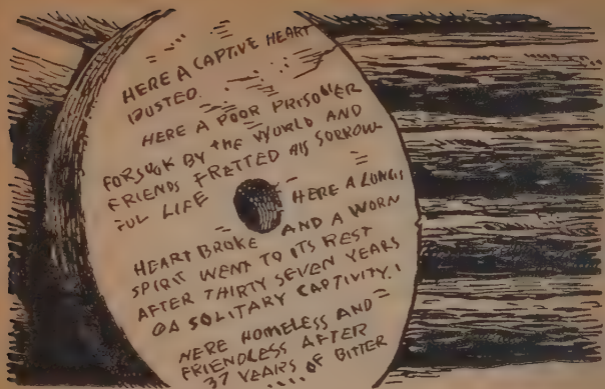 HERE A CAPTIVE HEART
BUSTED.
HERE A POOR PRISONER
FORSOOK BY tHE WORLD AND
FRIENDS FRETTED HIS SORROW
FUL LIFE
HERE A LONELY
HEART BROKE AND A WORN
SPIRIT WENT TO ITS REST
AFTER THIRTY SEVEN YEARS
OF SOLITARY CAPTIVITY.
HERE HOMELESS AND
FRIENDLESS AFTER
37 YEARS OF BITTER